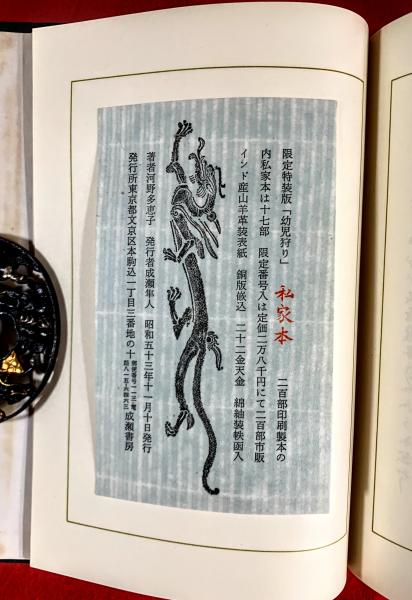 限定特装版「幼児狩り」
私家本
二百部印刷製本の
内私家本は十七部 限定番号入は定価二万八千円にて二百部市販
インド産山羊革装表紙 銅版嵌込 二十二金天金 綿紬装帙函入
著者河野多恵子 発行者成瀬隼人 昭和五十三年十一月十日発行
発行所東京都文京区本駒込一丁目三番地の十 成瀬書房